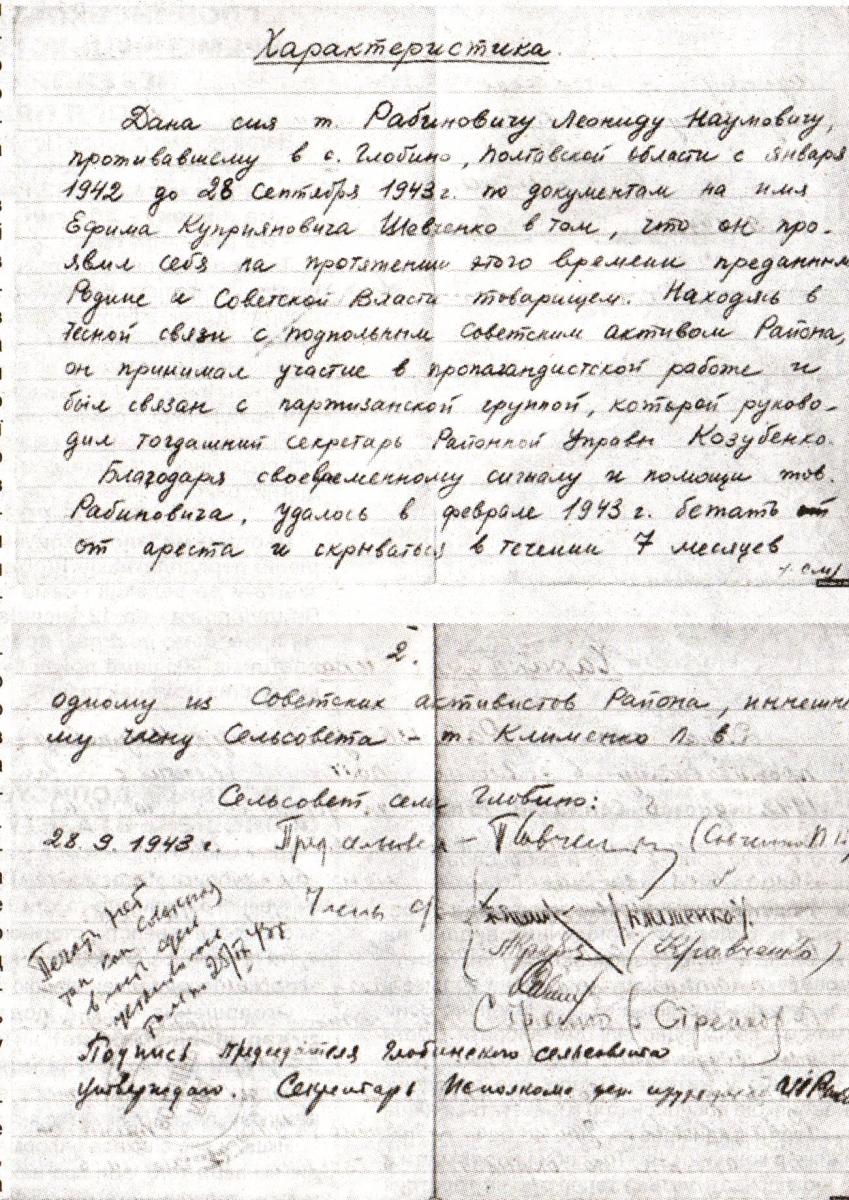 Характеристика.
Дана сия т. Рабиновичу Леониду Наумовичу,
проживавшему в с. Глобино, Полтавской области с января
1942 до 28 Сентября 1943 г. по документам на имя
Ефима Куприяновича Шевченко в том, что он про-
явил себя на протяжении этого времени преданным
Родине и Советской Власти товарищем. Находясь в
тесной связи с подпольным советским активом Района,
он принимал участие в пропагандистской работе и
был связан с партизанской группой, которой руково-
дил тогдашний секретарь Районной Управы Козубенко.
Благодаря своевременному сигналу и помощи тов.
Рабиновича, удалось в феврале 1943 г. бежать от
от ареста и скрываться в течении 7 месяцев
2.
одному из Советских активистов Района, нынешне
му члену Сельсовета – т. Клименко П. В.
Сельсовет села Глобино:
28. 9. 1943 г. Пред сельсовета –
Члены с/с /Клименко/.
(Кравченко)
Печать
так как
только
Подпись председателя Глобинского сельсовета
утверждаю. Секретарь Исполкома